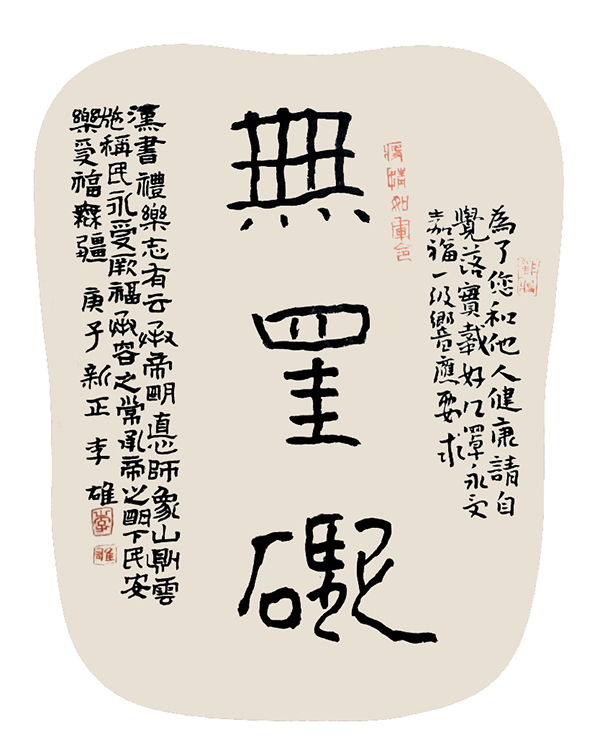 為了您和他人健康請自
覺落實戴好口罩永受
嘉福一級響應要求
疫情如軍令
無罣礙
漢書禮樂志有云承帝明惪師象山則雲
施稱民永受厥福承容之常承帝之明下民安
樂受福無疆 庚子新正 李雄
李
雄